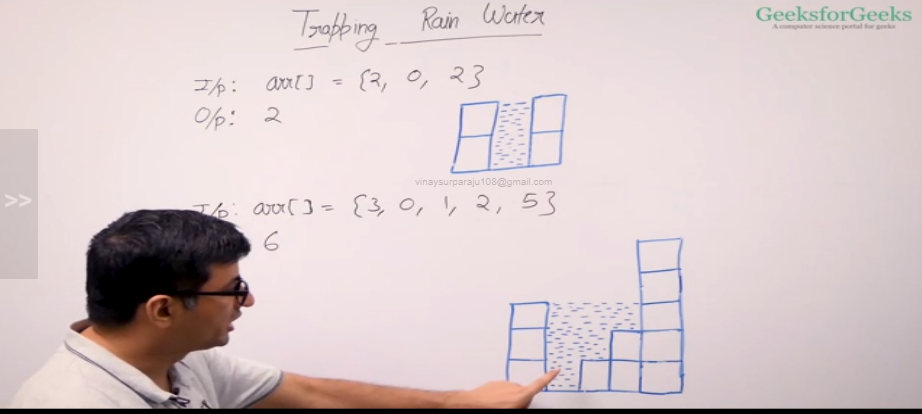 Trapping Rain Water
GeeksforGeeks
A computer science portal for geeks
I/p: arr[] = {2, 0, 2}
O/p: 2
vinaysurparaju108@gmail.com
I/p: arr[] = {3, 0, 1, 2, 5}
6
>>